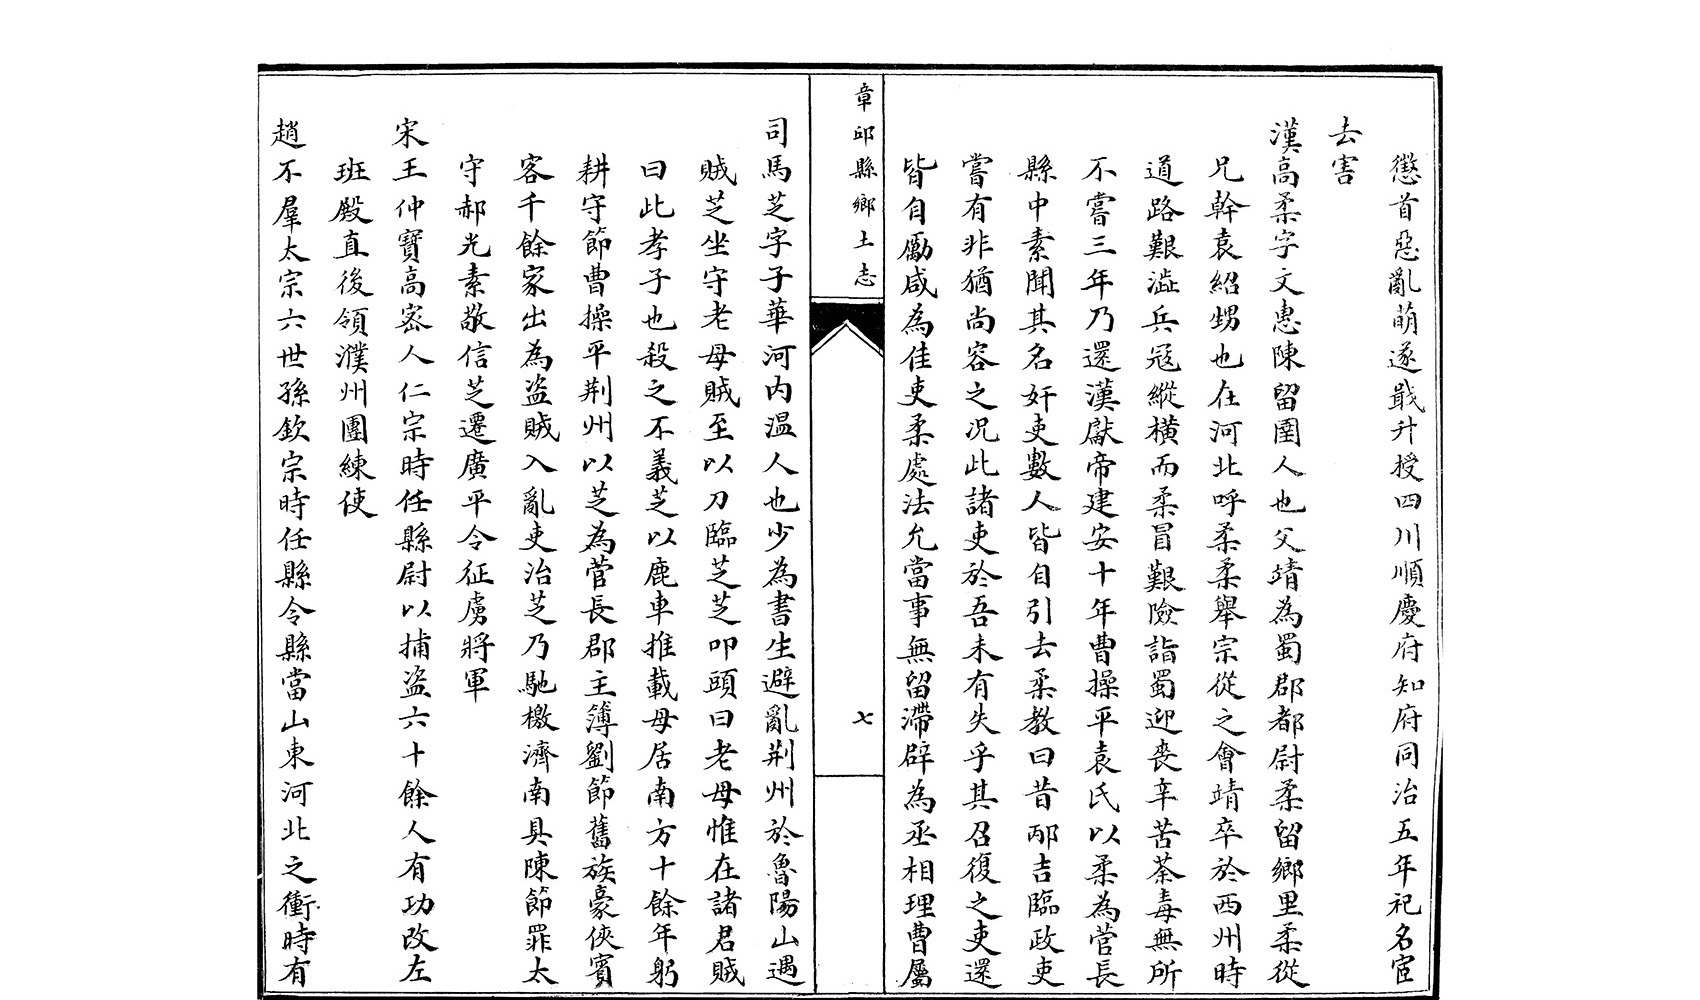 懲首惡亂萌遂戢升授四川順慶府知府同治五年祀名宦
去害
漢高柔字文惠陳留圉人也父靖為蜀郡都尉柔留鄉里柔從
兄幹袁紹甥也在河北呼柔柔舉宗從之會靖卒於西州時
道路艱澁兵寇縱橫而柔冒艱險詣蜀迎喪辛苦荼毒無所
不嘗三年乃還漢獻帝建安十年曹操平袁氏以柔為菅長
縣中素聞其名奸吏數人皆自引去柔教曰昔邴吉臨政吏
嘗有非猶尚容之况此諸吏於吾未有失乎其召復之吏還
皆自勵咸為佳吏柔處法允當事無留滯辟為丞相理曹屬
章邱縣鄉土志
七
司馬芝字子華河內溫人也少為書生避亂荆州於魯陽山遇
賊芝坐守老母賊至以刀臨芝芝叩頭曰老母惟在諸君賊
曰此孝子也殺之不義芝以鹿車推載母居南方十餘年躬
耕守節曹操平荆州以芝為菅長郡主簿劉節舊族豪俠賓
客千餘家出為盜賊入亂吏治芝乃馳檄濟南具陳節罪太
守郝光素敬信芝遷廣平令征虜將軍
宋王仲寶高密人仁宗時任縣尉以捕盜六十餘人有功改左
班殿直後領濮州團練使
趙不羣太宗六世孫欽宗時任縣令縣當山東河北之衝時有